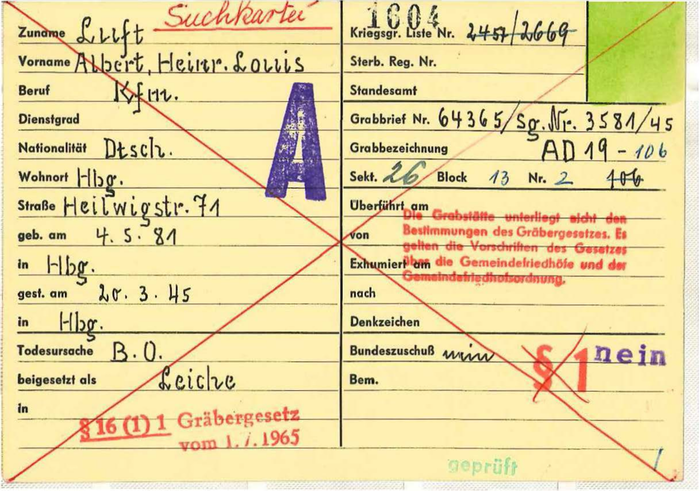 Suchkartei
1604
Zuname Luft
Vorname Albert, Heinr. Louis
Beruf Kfm.
Dienstgrad
Nationalität Dtsch.
Wohnort Hbg.
Straße Heilwigstr. 71
geb. am 4. 5. 81
in Hbg.
gest. am 20. 3. 45
in Hbg.
Todesursache B. O.
beigesetzt als Leiche
in
§ 16 (1) 1 Gräbergesetz
vom 1. 7. 1965
A
Kriegsgr. Liste Nr. 2457/2669
Sterb. Reg. Nr.
Standesamt
Grabbrief Nr. 64365/Sg. Nr. 3581/45
Grabbezeichnung AD 19 - 106
Sekt. 26 Block 13 Nr. 2 106
Überführt am
von
Exhumiert am
nach
Die Grabstätte unterliegt nicht den
Bestimmungen des Gräbergesetzes. Es
gelten die Vorschriften des Gesetzes
über die Gemeindefriedhöfe und der
Gemeindefriedhofsordnung.
Denkzeichen
Bundeszuschuß nein
§ 1 nein
Bem.
geprüft